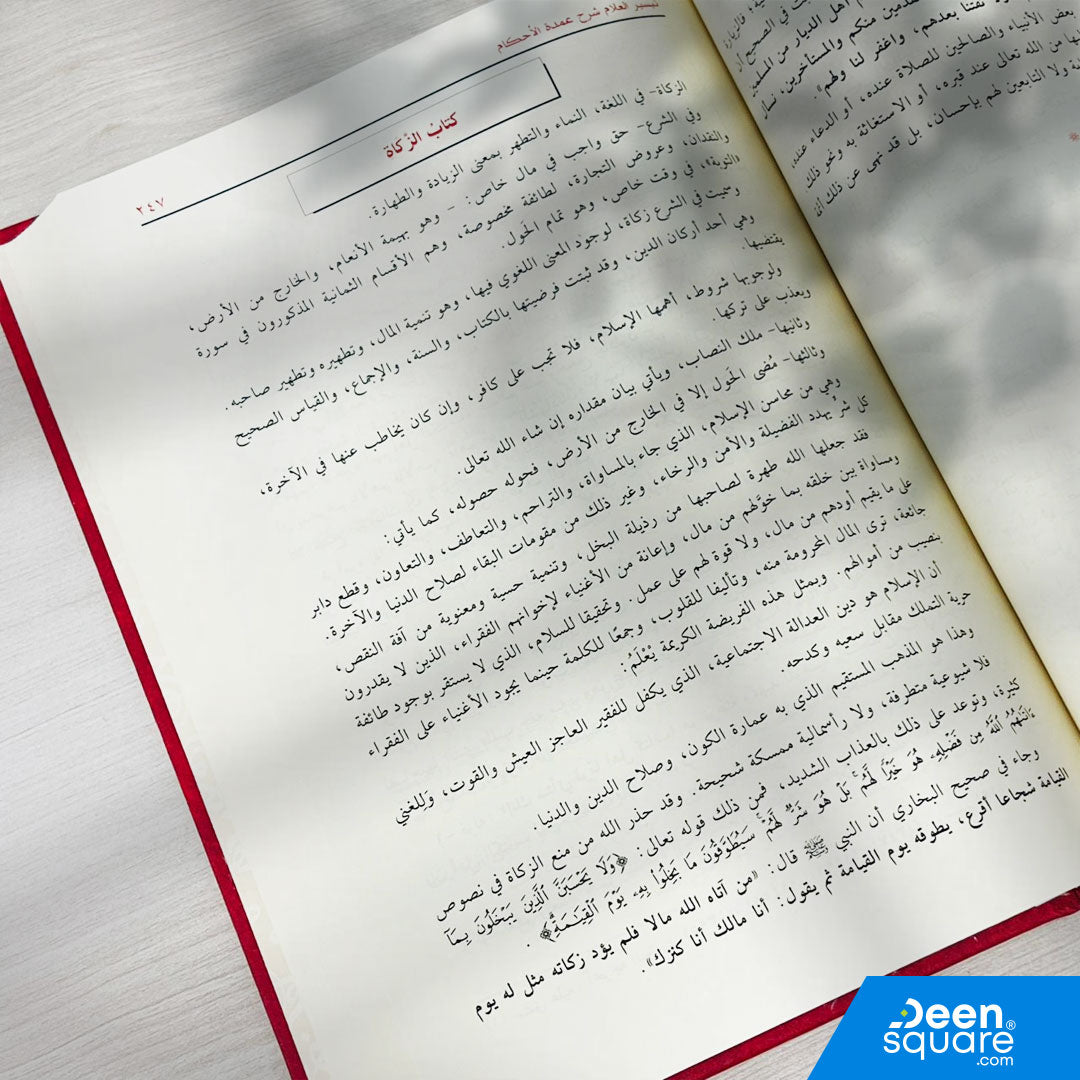 تيسير العلام شرح عمدة الأحكام
٢٤٧
كتابُ الزّكاة
الزكاة- في اللغة، النماء والتطهر بمعنى الزيادة والطهارة.
وفي الشرع- حق واجب في مال خاص: - وهو بهيمة الأنعام، والخارج من الأرض،
والنقدان، وعروض التجارة، لطائفة مخصوصة، وهم الأقسام الثمانية المذكورون في سورة
«التوبة»، في وقت خاص، وهو تمام الحَول.
وسميت في الشرع زكاة، لوجود المعنى اللغوي فيها، وهو تنمية المال، وتطهيره وتطهير صاحبه.
وهي أحد أركان الدين، وقد ثبتت فرضيتها بالكتاب، والسنة، والإجماع، والقياس الصحيح
يقتضيها.
ولوجوبها شروط، أهمها الإسلام، فلا تجب على كافر، وإن كان يخاطب عنها في الآخرة،
ويعذب على تركها.
وثانيها- ملك النصاب، ويأتي بيان مقداره إن شاء الله تعالى.
وثالثها- مُضى الحَول إلا في الخارج من الأرض، فحوله حصوله، كما يأتي:
وهي من محاسن الإسلام، الذي جاء بالمساواة، والتراحم، والتعاطف، والتعاون، وقطع دابر
كل شرٍّ يهدد الفضيلة والأمن والرخاء، وغير ذلك من مقومات البقاء لصلاح الدنيا والآخرة.
فقد جعلها الله طهرة لصاحبها من رذيلة البخل، وتنمية حسية ومعنوية من آفة النقص،
ومساواة بين خلقه بما خوَّلهم من مال، وإعانة من الأغنياء لإخوانهم الفقراء، الذين لا يقدرون
على ما يقيم أودهم من مال، ولا قوة لهم على عمل. وتحقيقا للسلام، الذي لا يستقر بوجود طائفة
جائعة، ترى المال المحرومة منه، وتأليفا للقلوب، وجمعًا للكلمة حينما يجود الأغنياء على الفقراء
بنصيب من أموالهم. وبمثل هذه الفريضة الكريمة يُعْلَمُ:
أن الإسلام هو دين العدالة الاجتماعية، الذي يكفل للفقير العاجز العيش والقوت، وَلِلغني
حرية التملك مقابل سعيه وكدحه.
وهذا هو المذهب المستقيم الذي به عمارة الكون، وصلاح الدين والدنيا.
فلا شيوعية متطرفة، ولا رأسمالية ممسكة شحيحة. وقد حذر الله من منع الزكاة في نصوص
كثيرة، وتوعد على ذلك بالعذاب الشديد، فمن ذلك قوله تعالى: ﴿وَلَا يَحْسَبَنَّ ٱلَّذِينَ يَبْخَلُونَ بِمَآ
ءَاتَىٰهُمُ ٱللَّهُ مِن فَضْلِهِۦ هُوَ خَيْرًا لَّهُم بَلْ هُوَ شَرٌّ لَّهُمْ سَيُطَوَّقُونَ مَا بَخِلُواْ بِهِۦ يَوْمَ ٱلْقِيَٰمَةِ﴾.
وجاء في صحيح البخاري أن النبي ﷺ قال: «من آتاه الله مالا فلم يؤد زكاته مثل له يوم
القيامة شجاعا أقرع، يطوقه يوم القيامة ثم يقول: أنا مالك أنا كنزك».
أهل الديار من المسلمين
منكم والمستأخرين، نسأل
تفتنا بعدهم، واغفر لنا ولهم».
بعض الأنبياء والصالحين للصلاة عنده، أو الدعاء عنده،
من الله تعالى عند قبره، أو الاستغاثة به ونحو ذلك
ولا التابعين لهم بإحسان، بل قد نهى عن ذلك
Deen
square®
.com